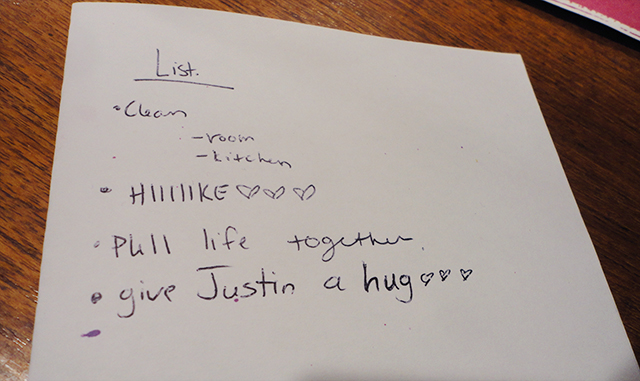 List.
• Clean
- room
- kitchen
• HIIIIIKE ♡♡♡
• Pull life together.
• give Justin a hug ♡♡♡
•